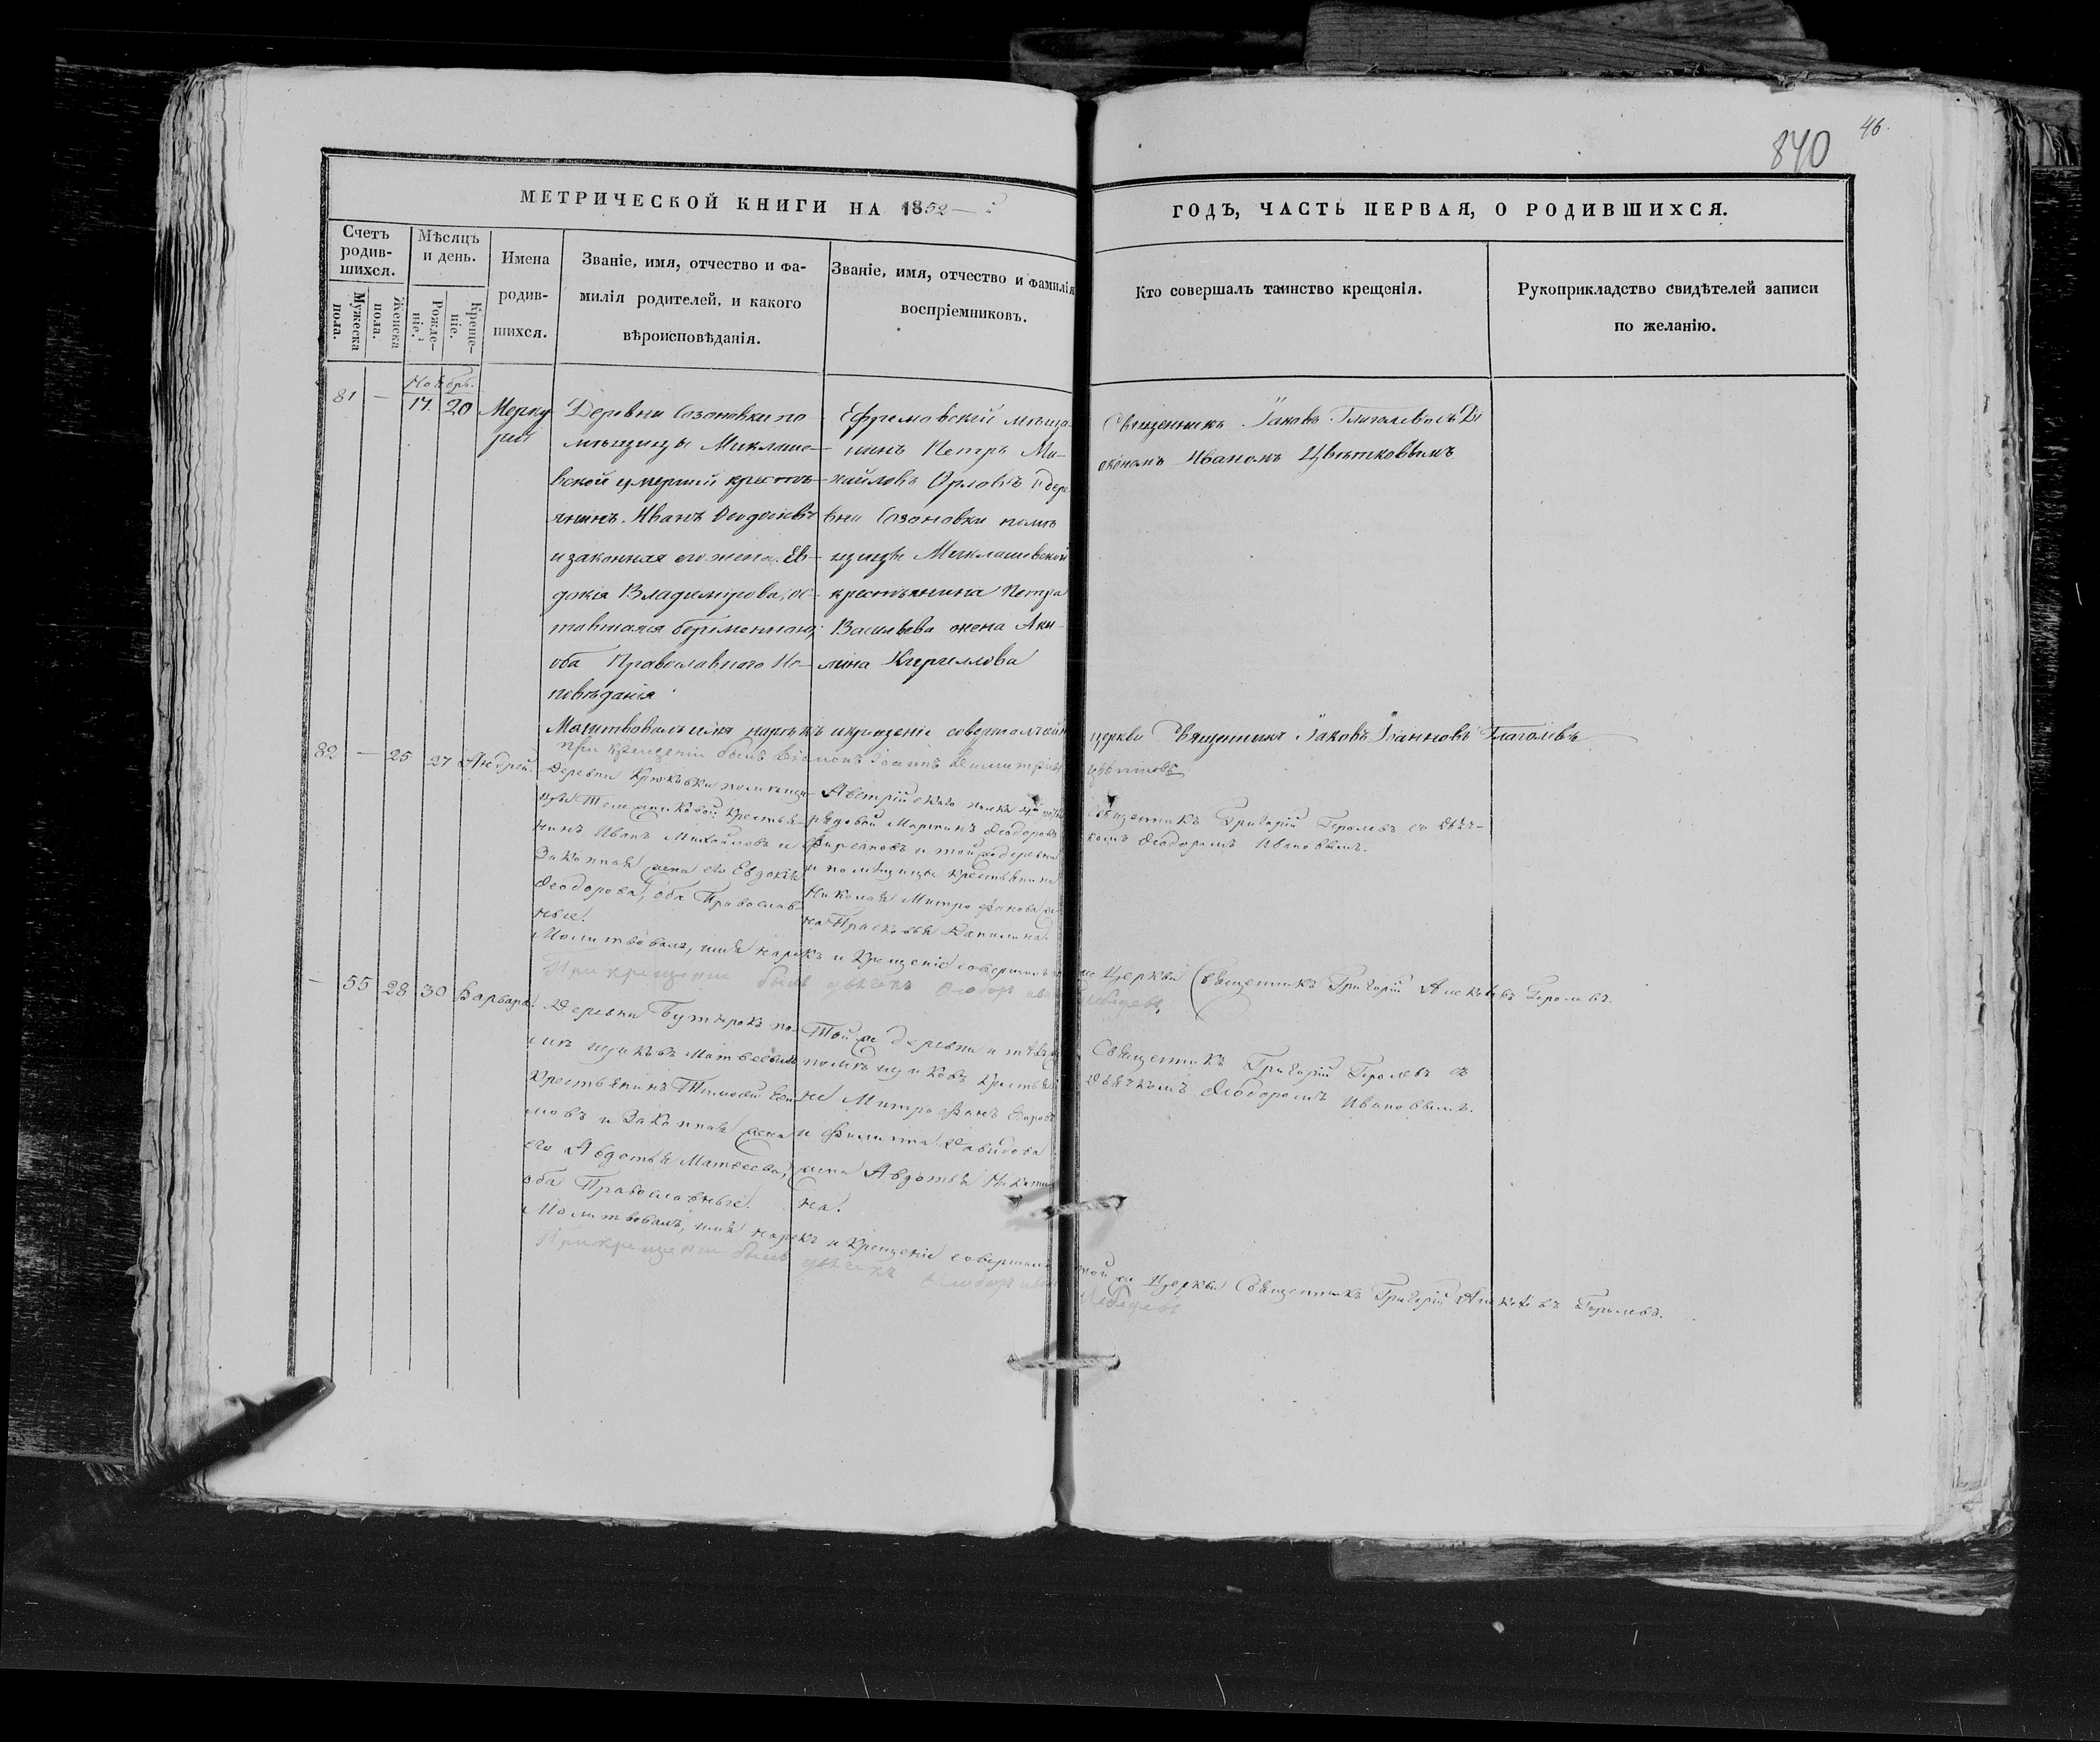 46.
840
МЕТРИЧЕСКОЙ КНИГИ НА 1852
ГОДЪ, ЧАСТЬ ПЕРВАЯ, О РОДИВШИХСЯ.
Счетъ родив-шихся.
Мужеска пола.
Женска пола.
Мѣсяцъ и день.
Рожде-ніе.
Креще-ніе.
Имена
родив-
шихся.
Званіе, имя, отчество и фа-
милія родителей, и какого
вѣроисповѣданія.
Званіе, имя, отчество и фамилія
воспріемниковъ.
Кто совершалъ таинство крещенія.
Рукоприкладство свидѣтелей записи
по желанію.
Ноябрь.
81 — 17. 20 Мерку
рій
Деревни Созоновки по
мѣщицы Миклаше-
вской умершій кресть-
янинъ Иванъ Ѳеодосіевъ
и законная его жена Ев-
докія Владимірова, ос-
тавшаяся беременною,
оба Православнаго Ис-
повѣданія
Ефремовскій мѣща-
нинъ Петръ Ми-
хайловъ Орловъ и дере
вни Созоновки помѣ
щицы Миклашевской
крестьянина Петра
Васильева жена Аку-
лина Кириллова
Священникъ Іаковъ Глаголевъ съ Ді
акономъ Иваномъ Цвѣтковымъ
Молитвовалъ имя нарекъ и крещеніе совершалъ
церкви Священникъ Іаковъ Іоанновъ Глаголевъ
При крещеніи былъ Діаконъ Іоаннъ Димитріевъ
Цвѣтковъ
82 — 25 27 Андрей.
Деревни Крюковки помѣщи-
крестья-
нинъ Иванъ Михайловъ и
Законная жена его Евдокія
Ѳеодорова, оба Православ-
ные.
Австрійскаго полка
рядовой Мартинъ Ѳеодоровъ
и той же деревни
и помѣщицы крестьянина
Николая Митрофанова же-
на Прасковья Данилина.
Священникъ Григорій Горолевъ съ Дьяч-
комъ Ѳеодоромъ Ивановымъ.
Молитвовалъ, имя нарекъ и Крещеніе совершалъ
Церкви Священникъ Григорій Алексѣевъ Горолевъ.
При крещеніи былъ дьячекъ Ѳеодоръ Иванов
Лебедевъ
— 55 28 30 Варвара.
Деревни Бутырокъ по-
мѣщиковъ Матвеевыхъ
Крестьянинъ Тимоѳей Ефи-
мовъ и Законная жена
его Авдотья Матвеева,
оба Православные.
Той же деревни и тѣхъ же
помѣщиковъ Крестья
не Митрофанъ
и Филиппа Давидова
жена Авдотья Никити
на.
Священникъ Григорій Горолевъ съ
Дьячкомъ Ѳеодоромъ Ивановымъ.
Молитвовалъ, имя нарекъ и Крещеніе совершалъ
той же Церкви Священникъ Григорій Алексѣевъ Горолевъ.
При крещеніи былъ дьячекъ Ѳеодоръ Иванов
Лебедевъ